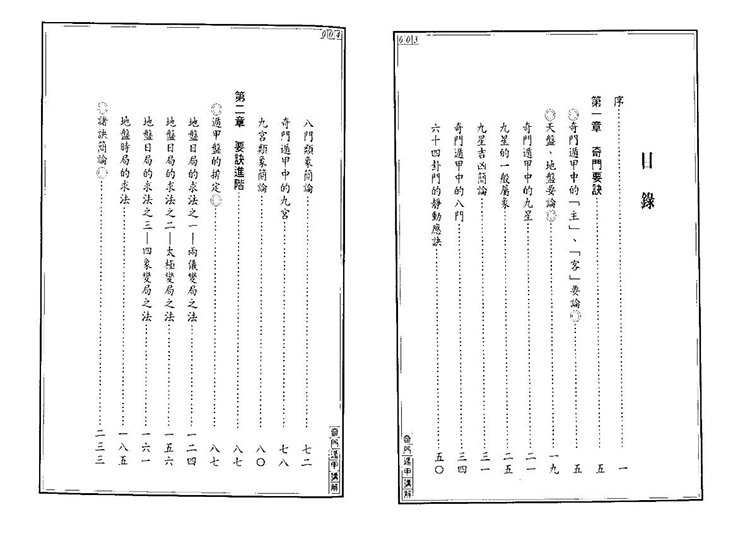 003
目錄
序 一
第一章 奇門要訣 五
◎奇門遁甲中的「主」、「客」要論◎ 五
◎天盤、地盤要論◎ 一九
奇門遁甲中的九星 二一
九星的一般屬象 二五
九星吉凶簡論 三一
奇門遁甲中的八門 三四
六十四卦門的靜動應訣 五〇
奇門遁甲講解
004
八門類象簡論 七二
奇門遁甲中的九宮 七八
九宮類象簡論 八〇
第二章 要訣進階 八七
◎遁甲盤的排定◎ 八七
地盤日局的求法之一—兩儀變局之法 一二四
地盤日局的求法之二—太極變局之法 一五六
地盤日局的求法之三—四象變局之法 一六一
地盤時局的求法 一八五
◎諸訣簡論◎ 二三三
奇門遁甲講解